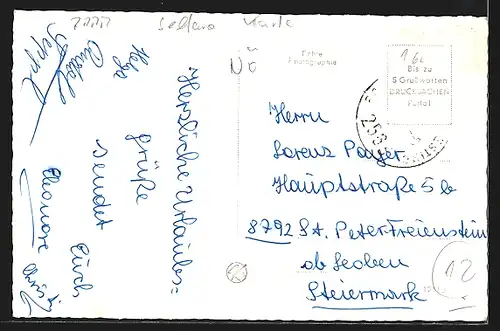 Seltene Karte
NÖ
Echte
Photographie
Bis zu
5 Grußworten
DRUCKSACHEN
Portol
Herzliche Urlaubs=
grüße
sendet Euch
Eleonore
Helga
Seppl
Herrn
Lorenz Payer
Hauptstraße 5b
8792 St. Peter-Freienstein
ob Leoben
Steiermark
12